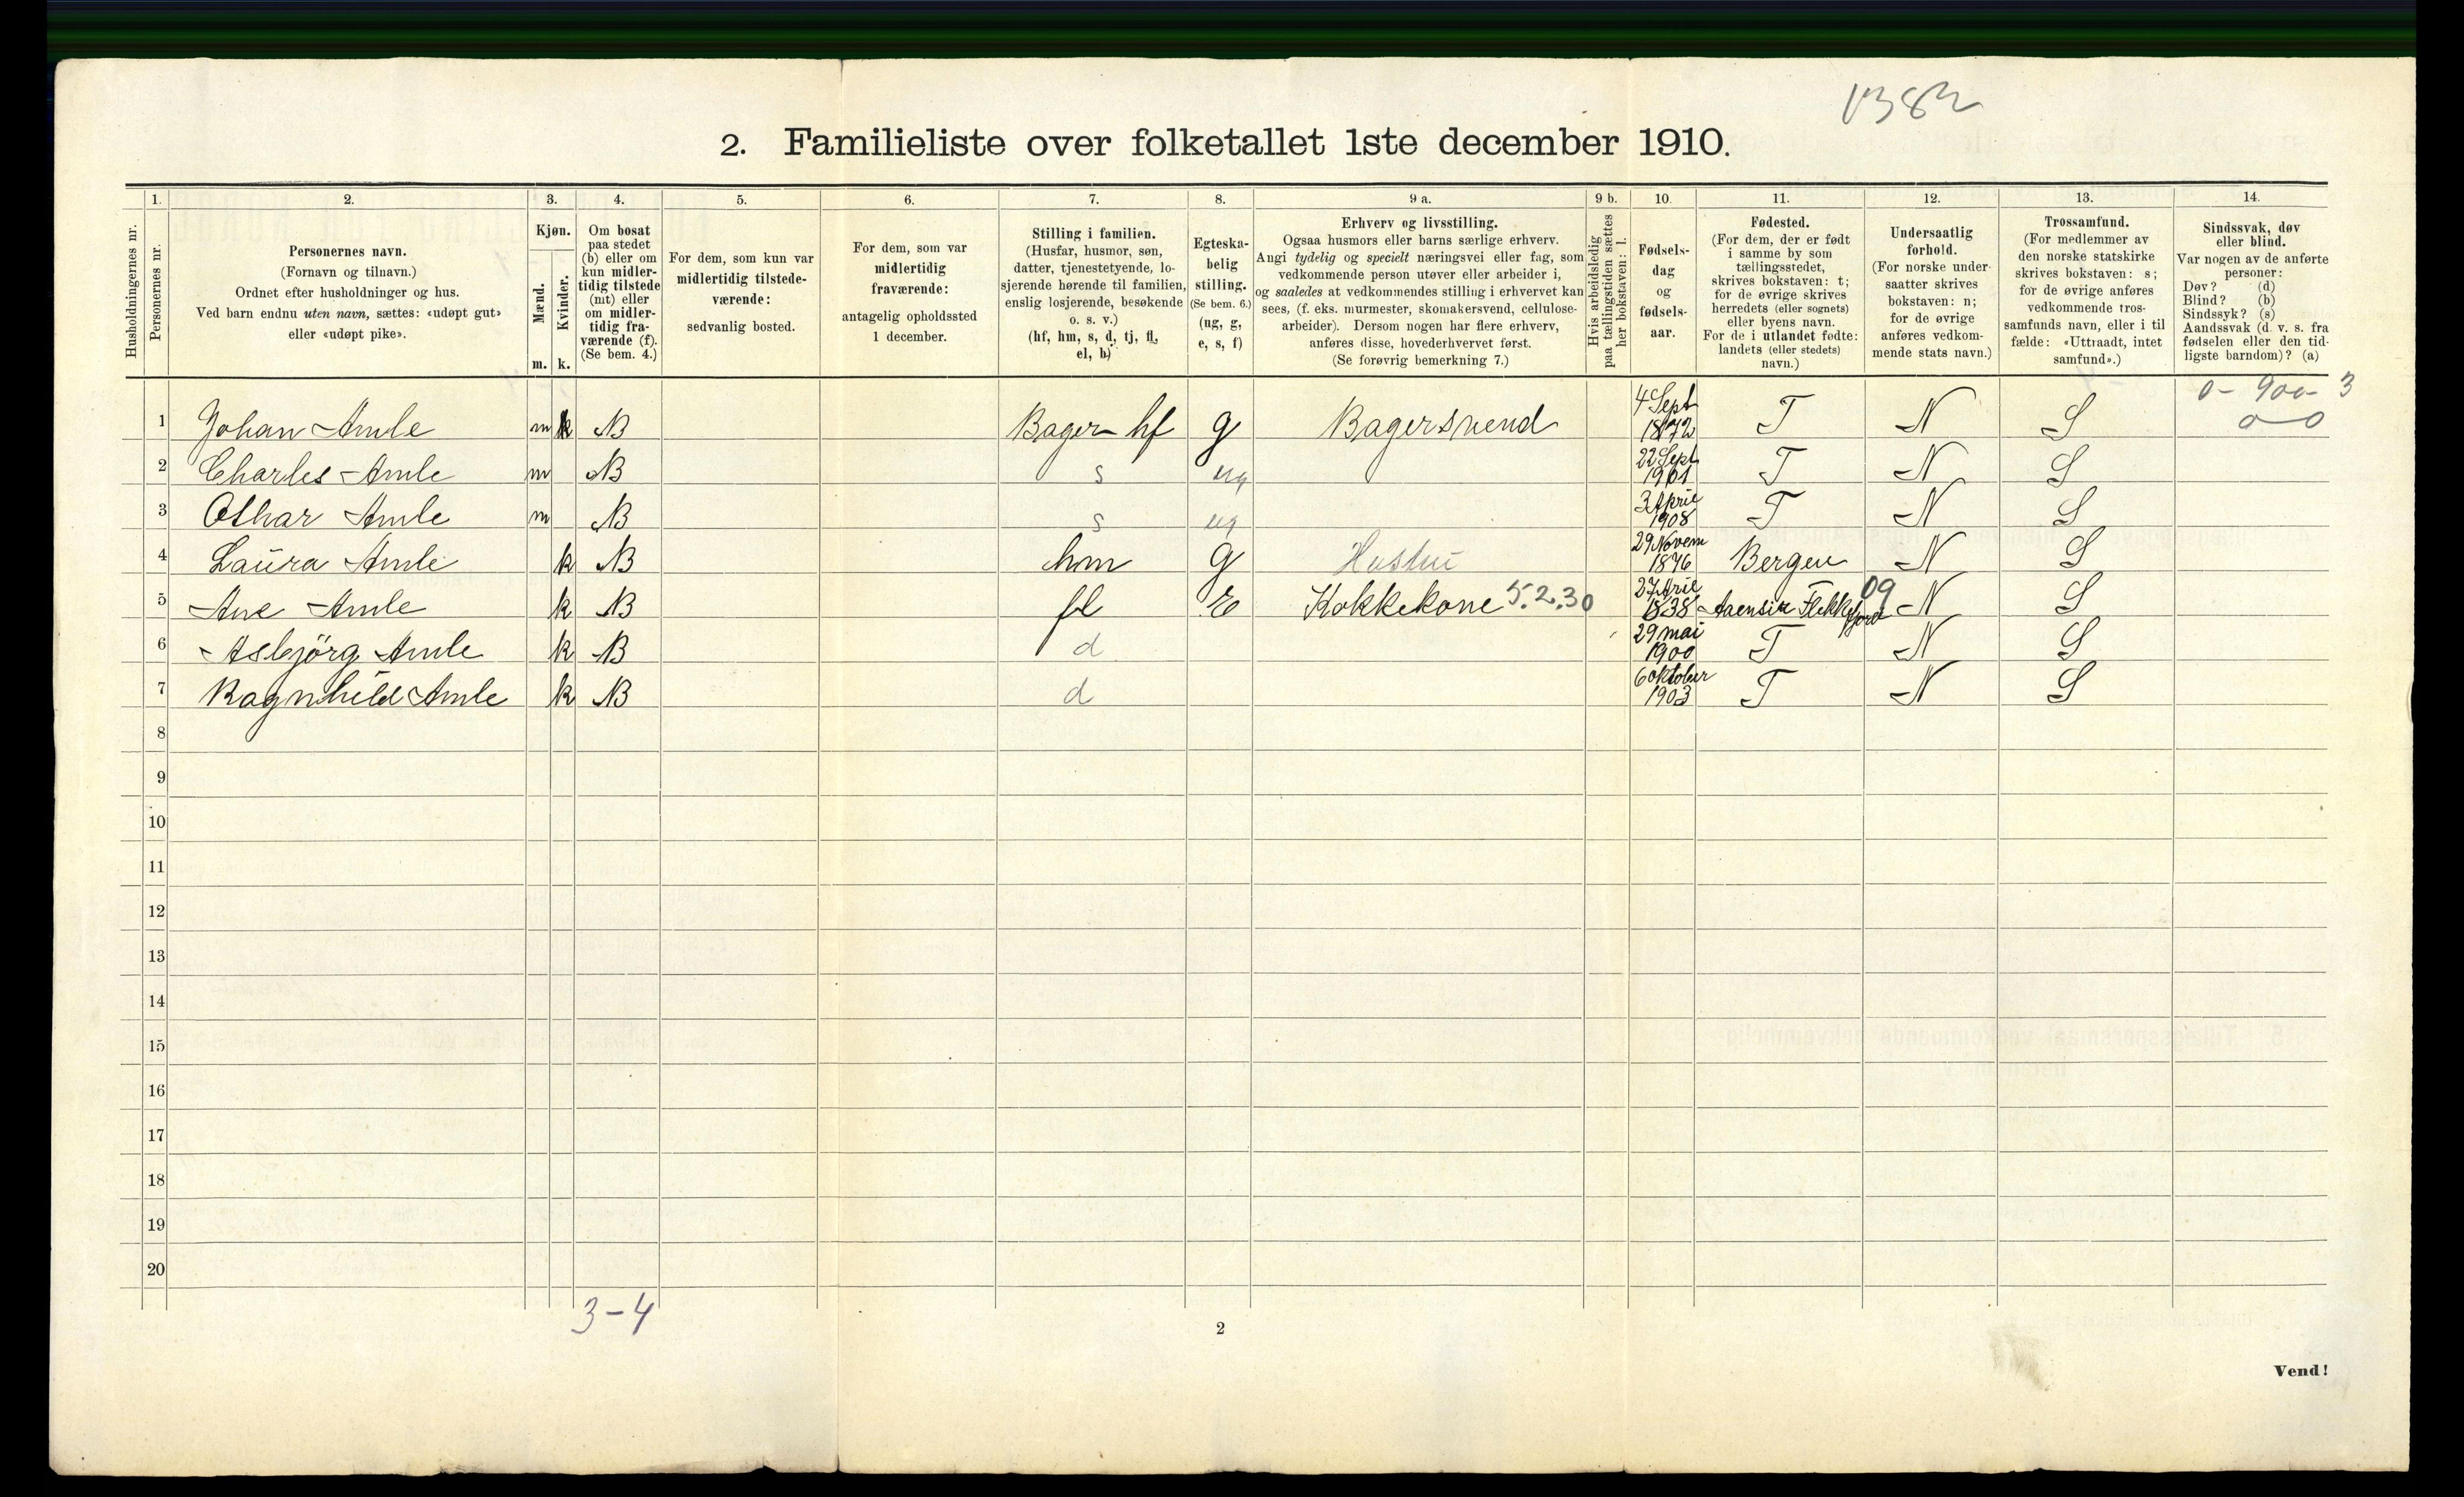 1382
2. Familieliste over folketallet 1ste december 1910.
Husholdningernes nr.
1.
Personernes nr.
2.
Personernes navn.
(Fornavn og tilnavn.)
Ordnet efter husholdninger og hus.
Ved barn endnu uten navn, sættes: «udøpt gut»
eller «udøpt pike».
3.
Kjøn.
Mænd.
Kvinder.
m. k.
4.
Om bosat
paa stedet
(b) eller om
kun midler-
tidig tilstede
(mt) eller
om midler-
tidig fra-
værende (f).
(Se bem. 4.)
5.
For dem, som kun var
midlertidig tilstede-
værende:
sedvanlig bosted.
6.
For dem, som var
midlertidig
fraværende:
antagelig opholdssted
1 december.
7.
Stilling i familien.
(Husfar, husmor, søn,
datter, tjenestetyende, lo-
sjerende hørende til familien,
enslig losjerende, besøkende
o. s. v.)
(hf, hm, s, d, tj, fl,
el, b)
8.
Egteska-
belig
stilling.
(Se bem. 6.)
(ug, g,
e, s, f)
9 a.
Erhverv og livsstilling.
Ogsaa husmors eller barns særlige erhverv.
Angi tydelig og specielt næringsvei eller fag, som
vedkommende person utøver eller arbeider i,
og saaledes at vedkommendes stilling i erhvervet kan
sees, (f. eks. murmester, skomakersvend, cellulose-
arbeider). Dersom nogen har flere erhverv,
anføres disse, hovederhvervet først.
(Se forøvrig bemerkning 7.)
9 b.
Hvis arbeidsledig
paa tællingstiden sættes
her bokstaven: l.
10.
Fødsels-
dag
og
fødsels-
aar.
11.
Fødested.
(For dem, der er født
i samme by som
tællingsstedet,
skrives bokstaven: t;
for de øvrige skrives
herredets (eller sognets)
eller byens navn.
For de i utlandet fødte:
landets (eller stedets)
navn.)
12.
Undersaatlig
forhold.
(For norske under-
saatter skrives
bokstaven: n;
for de øvrige
anføres vedkom-
mende stats navn.)
13.
Trossamfund.
(For medlemmer av
den norske statskirke
skrives bokstaven: s;
for de øvrige anføres
vedkommende tros-
samfunds navn, eller i til
fælde: «Uttraadt, intet
samfund».)
14.
Sindssvak, døv
eller blind.
Var nogen av de anførte
personer:
Døv? (d)
Blind? (b)
Sindssyk? (s)
Aandssvak (d. v. s. fra
fødselen eller den tid-
ligste barndom)? (a)
0 - 900 - 3
0-0
1 Johan Amle m k B Bager hf g Bagersvend 4 Sept 1872 T N S
2 Charles Amle m B s ug 22 Sept 1901 T N S
3 Othar Amle m B s ug 3 April 1908 T N S
4 Laura Amle k B hm g Hustru 29 Novem 1876 Bergen N S
5 Ane Amle k B fl E Kokkekone 5.2.30 27 Aril 1838 Flekkefjord 09 N S
6 Asbjörg Amle k B d 29 mai 1900 T N S
7 Ragnhild Amle k B d 6 oktober 1903 T N S
8
9
10
11
12
13
14
15
16
17
18
19
20
3-4
2
Vend!